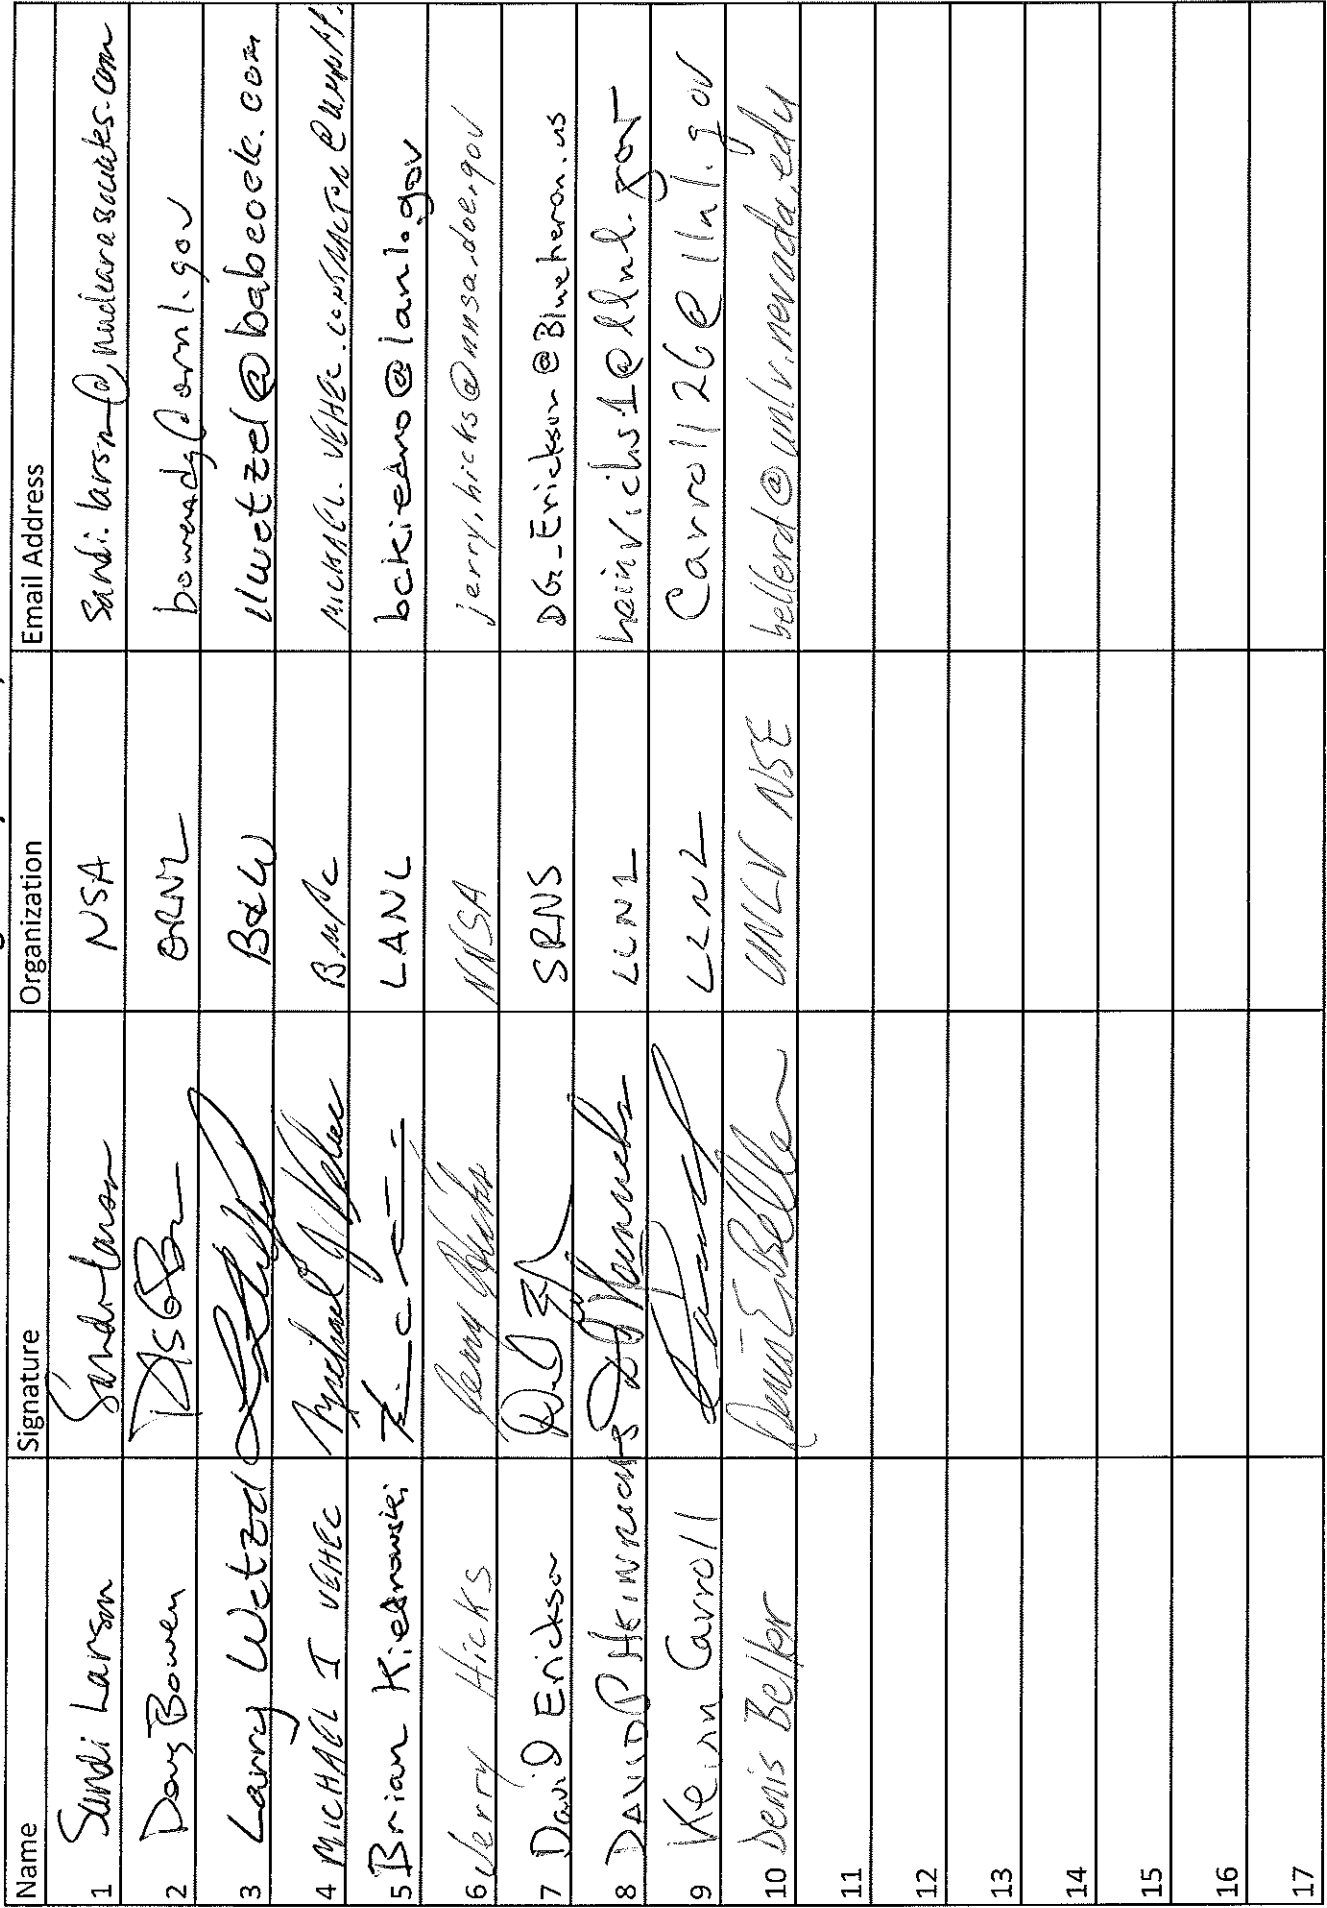 Name Signature Organization Email Address
1 Sandi Larson Sandi Larson NSA sandi.larson@nuclearassociates.com
2 Doug Bowen ORNL bowendg@ornl.gov
3 Larry Wetzel B&W llwetzel@babcock.com
4 MICHAEL I VEHEC Michael J Vehec MICHAEL.VEHEC.CONTRACTOR@
5 Brian Kiedrowski LANL bckiedro@lanl.gov
6 Jerry Hicks Jerry Hicks NNSA jerry.hicks@nnsa.doe.gov
7 David Erickson SRNS DG_Erickson@Blueheron.us
8 DAVID P HEINRICHS D P Heinrichs LLNL heinrichs1@llnl.gov
9 Kevin Carroll LLNL Carroll26@llnl.gov
10 Denis Beller Denis E Beller UNLV NSE bellerd@unlv.nevada.edu
11
12
13
14
15
16
17